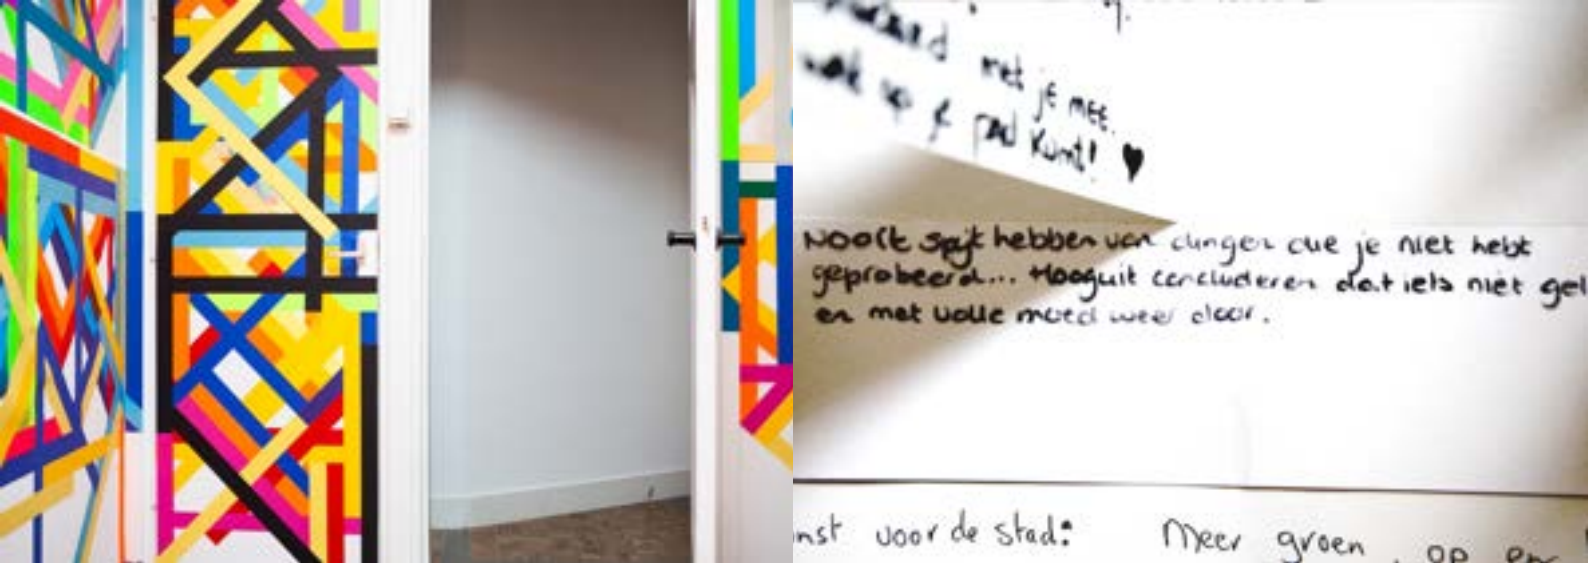 met je mee.
op & pad kunt! ♥
Nooit spijt hebben van dingen die je niet hebt
geprobeerd... Hooguit concluderen dat iets niet gel
en met volle moed weer door.
nst voor de stad: Meer groen, op en